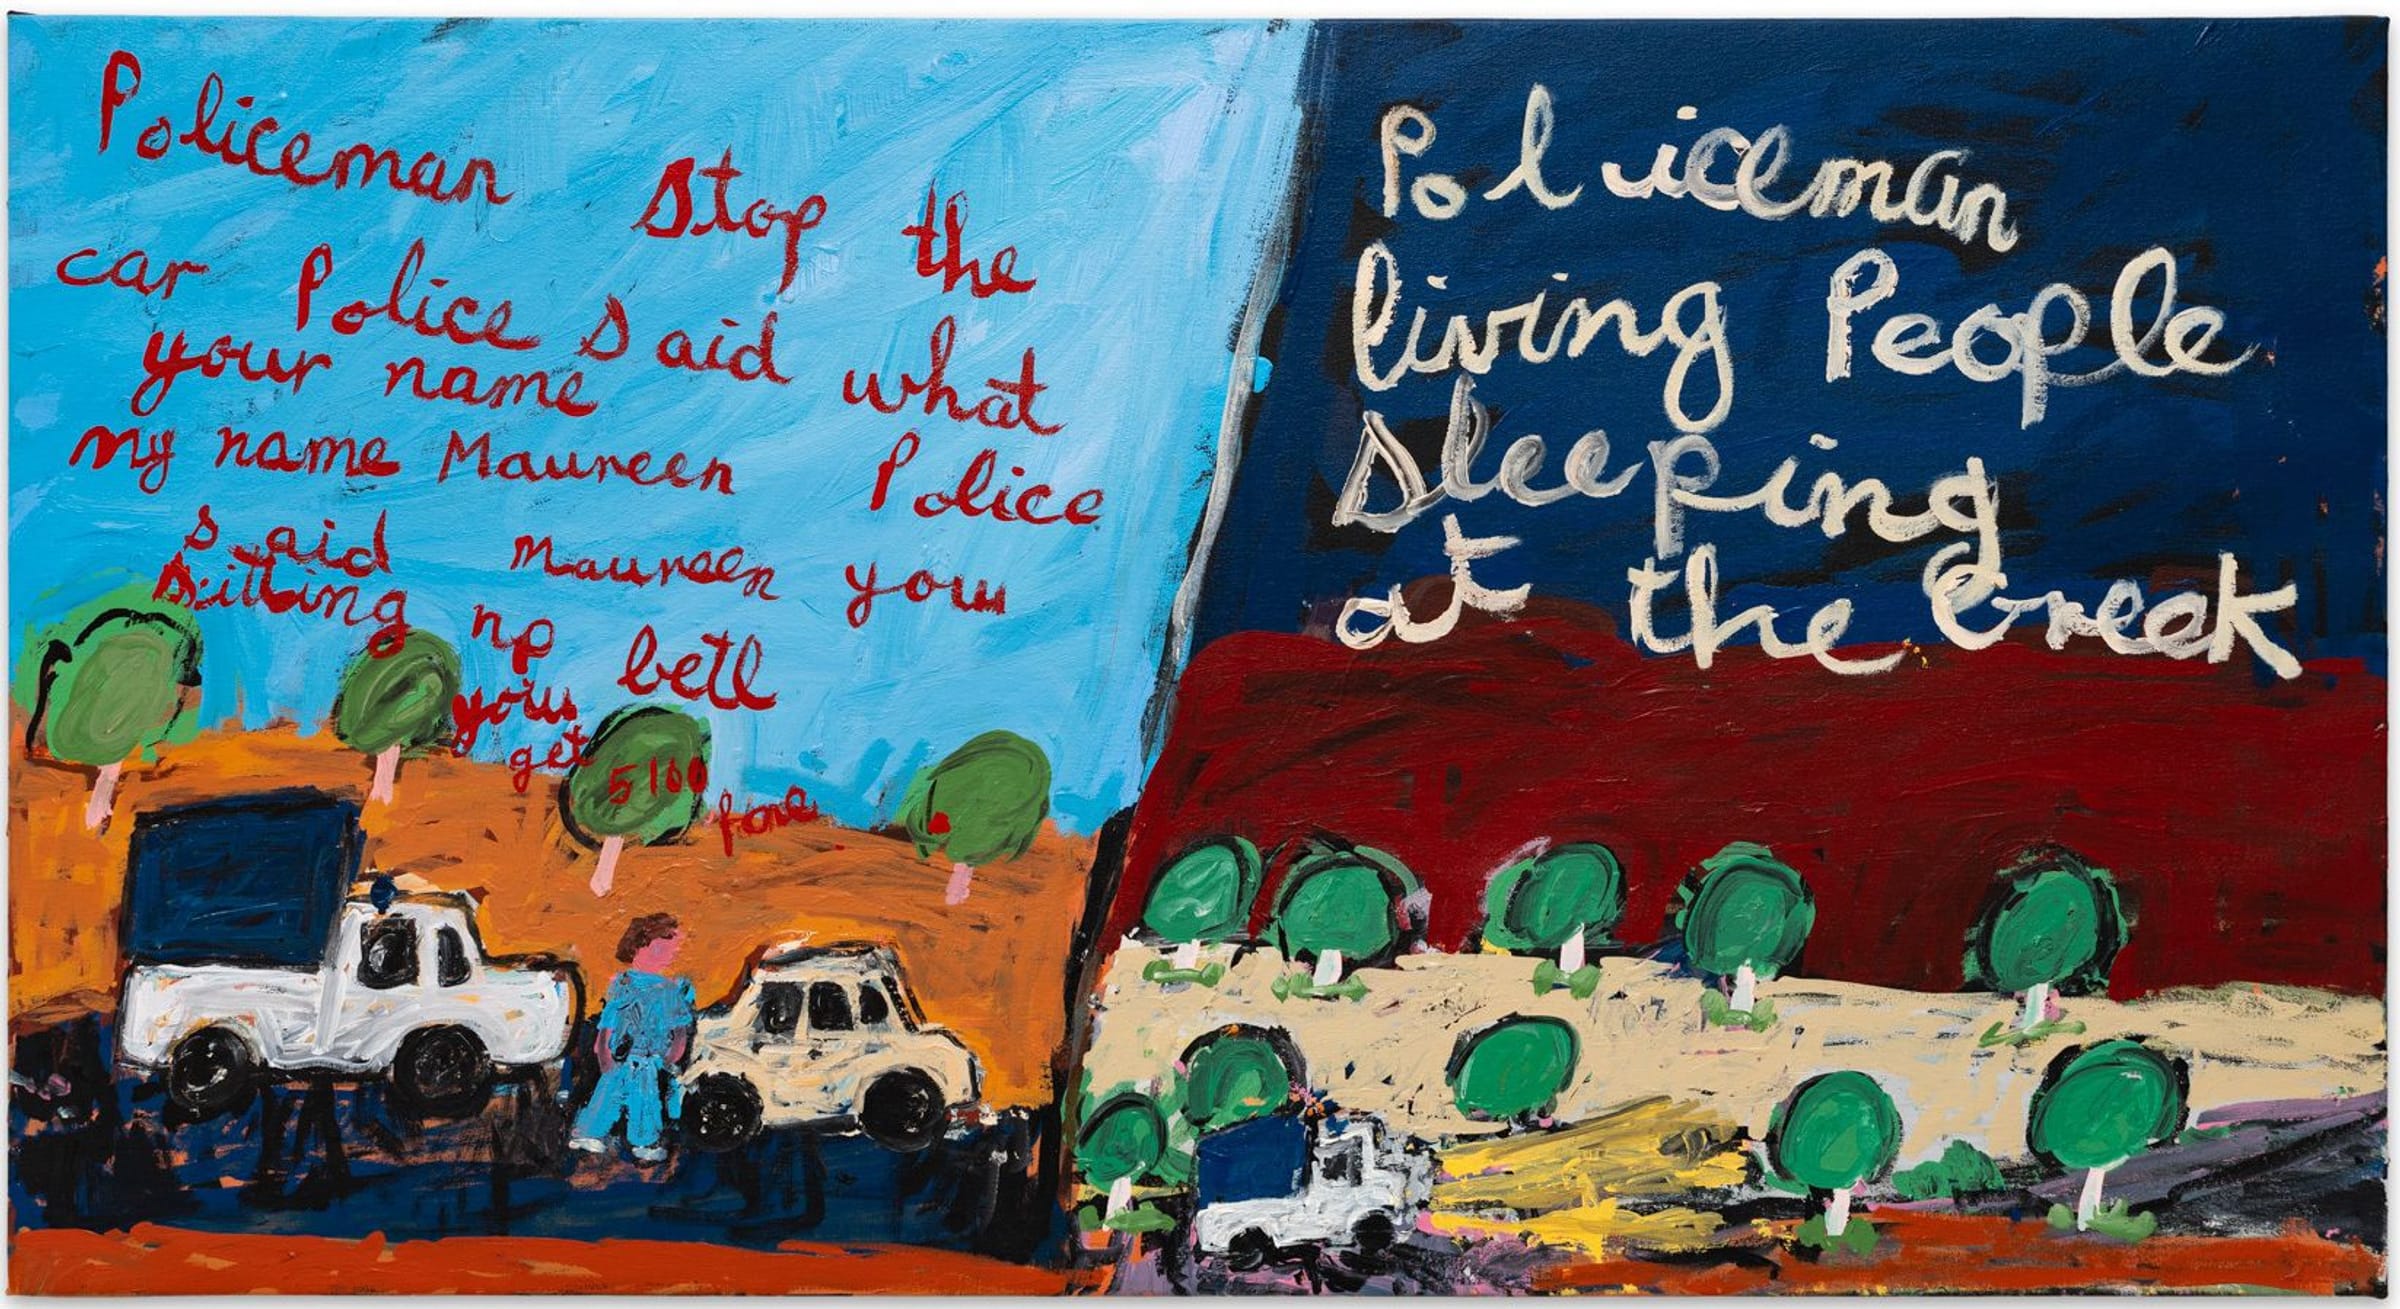 Policeman stop the
car Police said what
your name
my name Maureen Police
said Maureen you
sitting np betl
you
get 5100
fone
Policeman
living People
sleeping
at the Creek